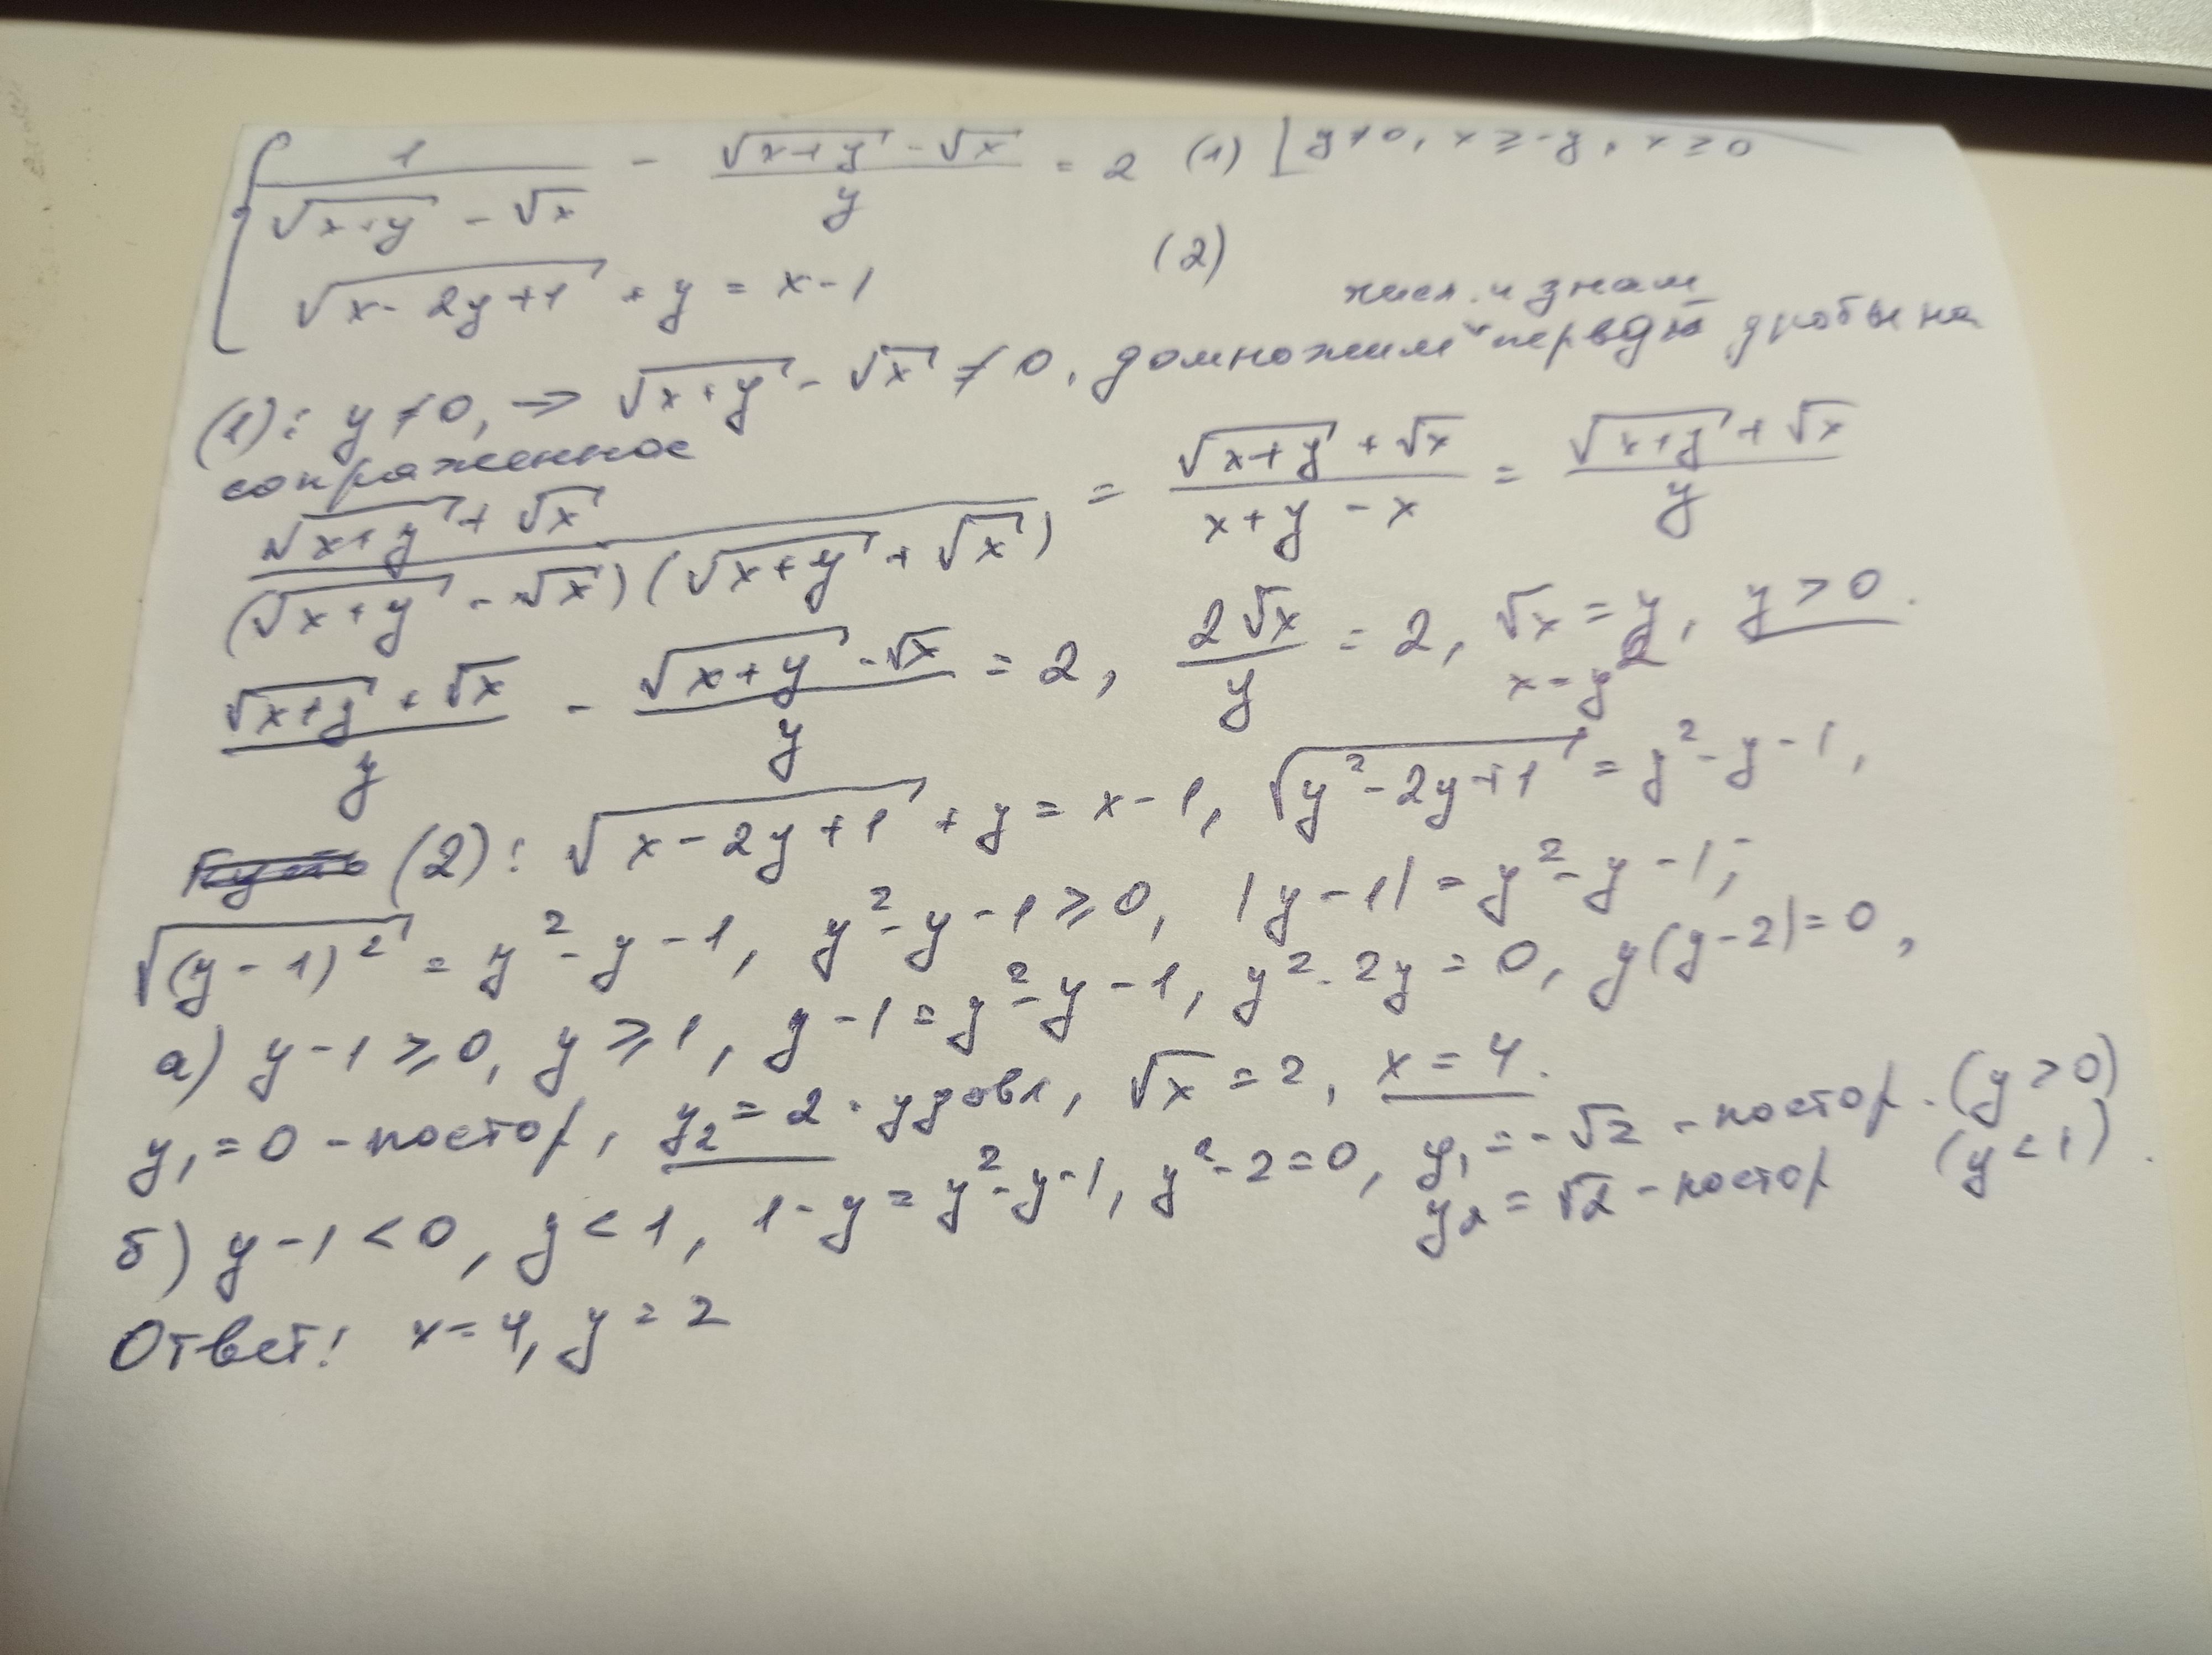 1/(√(x+y) - √x) - (√(x+y) - √x)/y = 2 (1) [y≠0, x ≥ -y, x ≥ 0
√(x - 2y + 1) + y = x - 1 (2)
числ. и знам
(1): y ≠ 0, → √(x+y) - √x ≠ 0, домножим первой дроби на
сопряженное
(√(x+y) + √x)/((√(x+y) - √x)(√(x+y) + √x)) = (√(x+y) + √x)/(x+y-x) = (√(x+y) + √x)/y
(√(x+y) + √x)/y - (√(x+y) - √x)/y = 2, 2√x/y = 2, √x = y, y > 0.
x = y²
(2): √(x - 2y + 1) + y = x - 1, √(y² - 2y + 1) = y² - y - 1,
√((y-1)²) = y² - y - 1, y² - y - 1 ≥ 0, |y - 1| = y² - y - 1;
а) y - 1 ≥ 0, y ≥ 1, y - 1 = y² - y - 1, y² - 2y = 0, y(y-2) = 0,
y₁ = 0 - постор, y₂ = 2 - удовл, √x = 2, x = 4.
б) y - 1 < 0, y < 1, 1 - y = y² - y - 1, y² - 2 = 0, y₁ = -√2 - постор. (y > 0)
y₂ = √2 - постор (y < 1).
Ответ: x = 4, y = 2